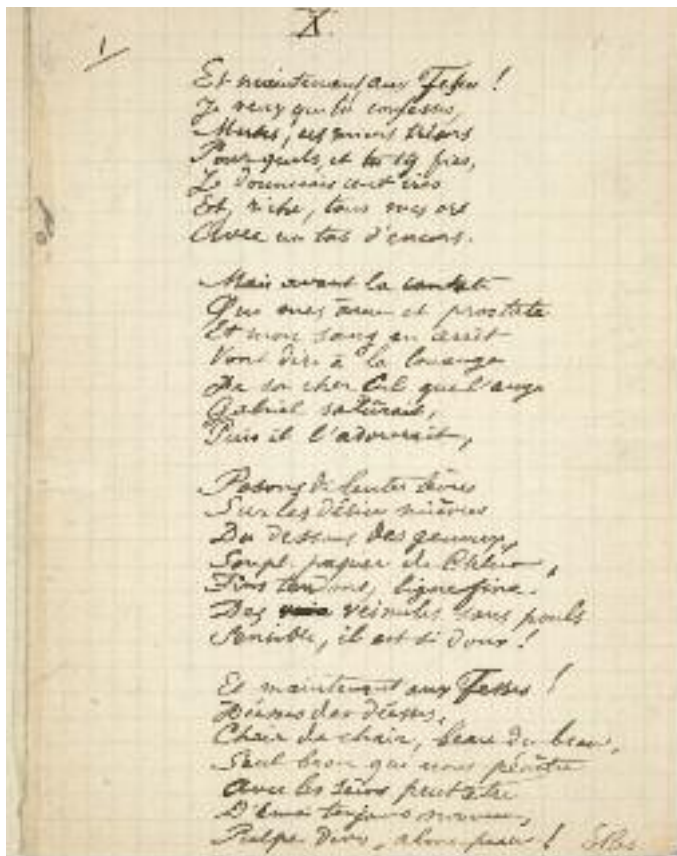 X.
1
Et maintenant aux Fesses !
Je veux que tu confesses,
Muse, ces miens trésors
Pour quels, et tu t'y fies,
Je donnerais cent vies
Et, riche, tous mes ors
Avec un tas d'encors.
Mais avant la cantate
Que mes âme et prostate
Et mon sang en arrêt
Vont dire à la louange
De son cher Cul que l'ange
Gabriel saluerait,
Puis il l'adorerait,
Posons de lentes lèvres
Sur les délices mièvres
Du dessous des genoux,
Souple papier de Chine,
Fins tendons, ligne fine
Des veinules sans pouls
Sensible, il est si doux !
Et maintenant aux Fesses !
Déesses des déesses,
Chair de chair, beau du beau,
Seul beau qui nous pénètre
Avec les seins peut-être
D'émoi toujours nouveau,
Pulpe dive, alme peau !
Elles